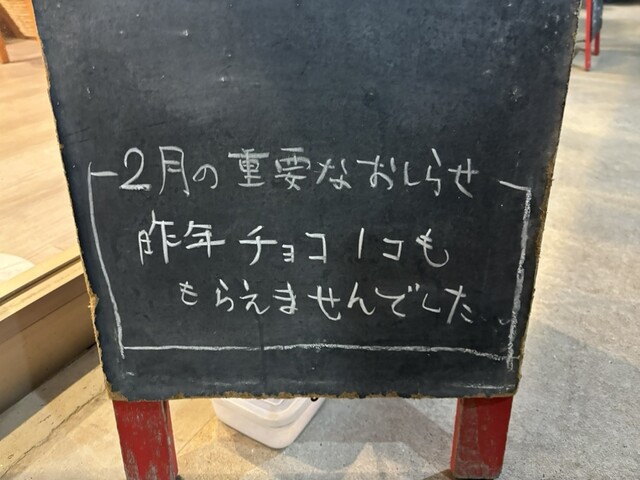 2月の重要なおしらせ
昨年チョコ1コも
もらえませんでした